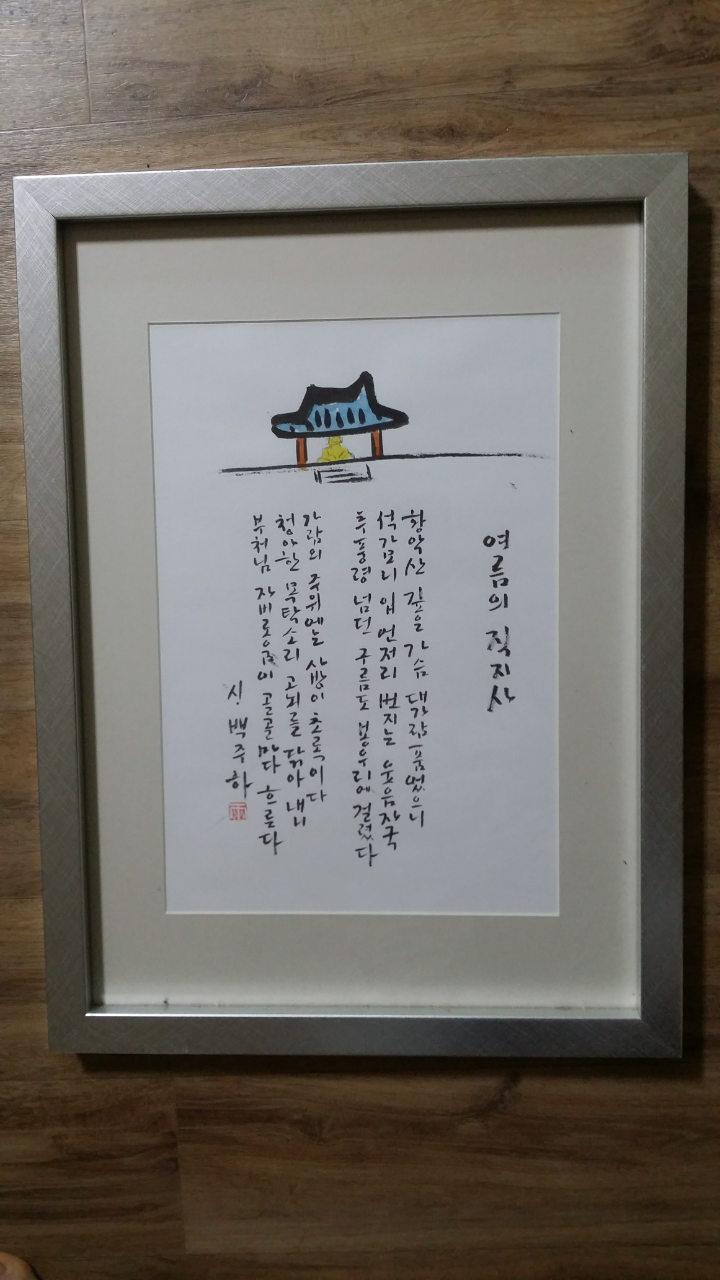 여름의 직지사
황악산 깊은 가슴 대가람 품었으니
석가모니 입 언저리 번지는 웃음자국
추풍령 넘던 구름도 봉우리에 걸렸다
가람의 주위에는 사방이 초록이다
청아한 목탁소리 고뇌를 닦아 내니
부처님 자비로움이 골골마다 흐른다
시. 백주하